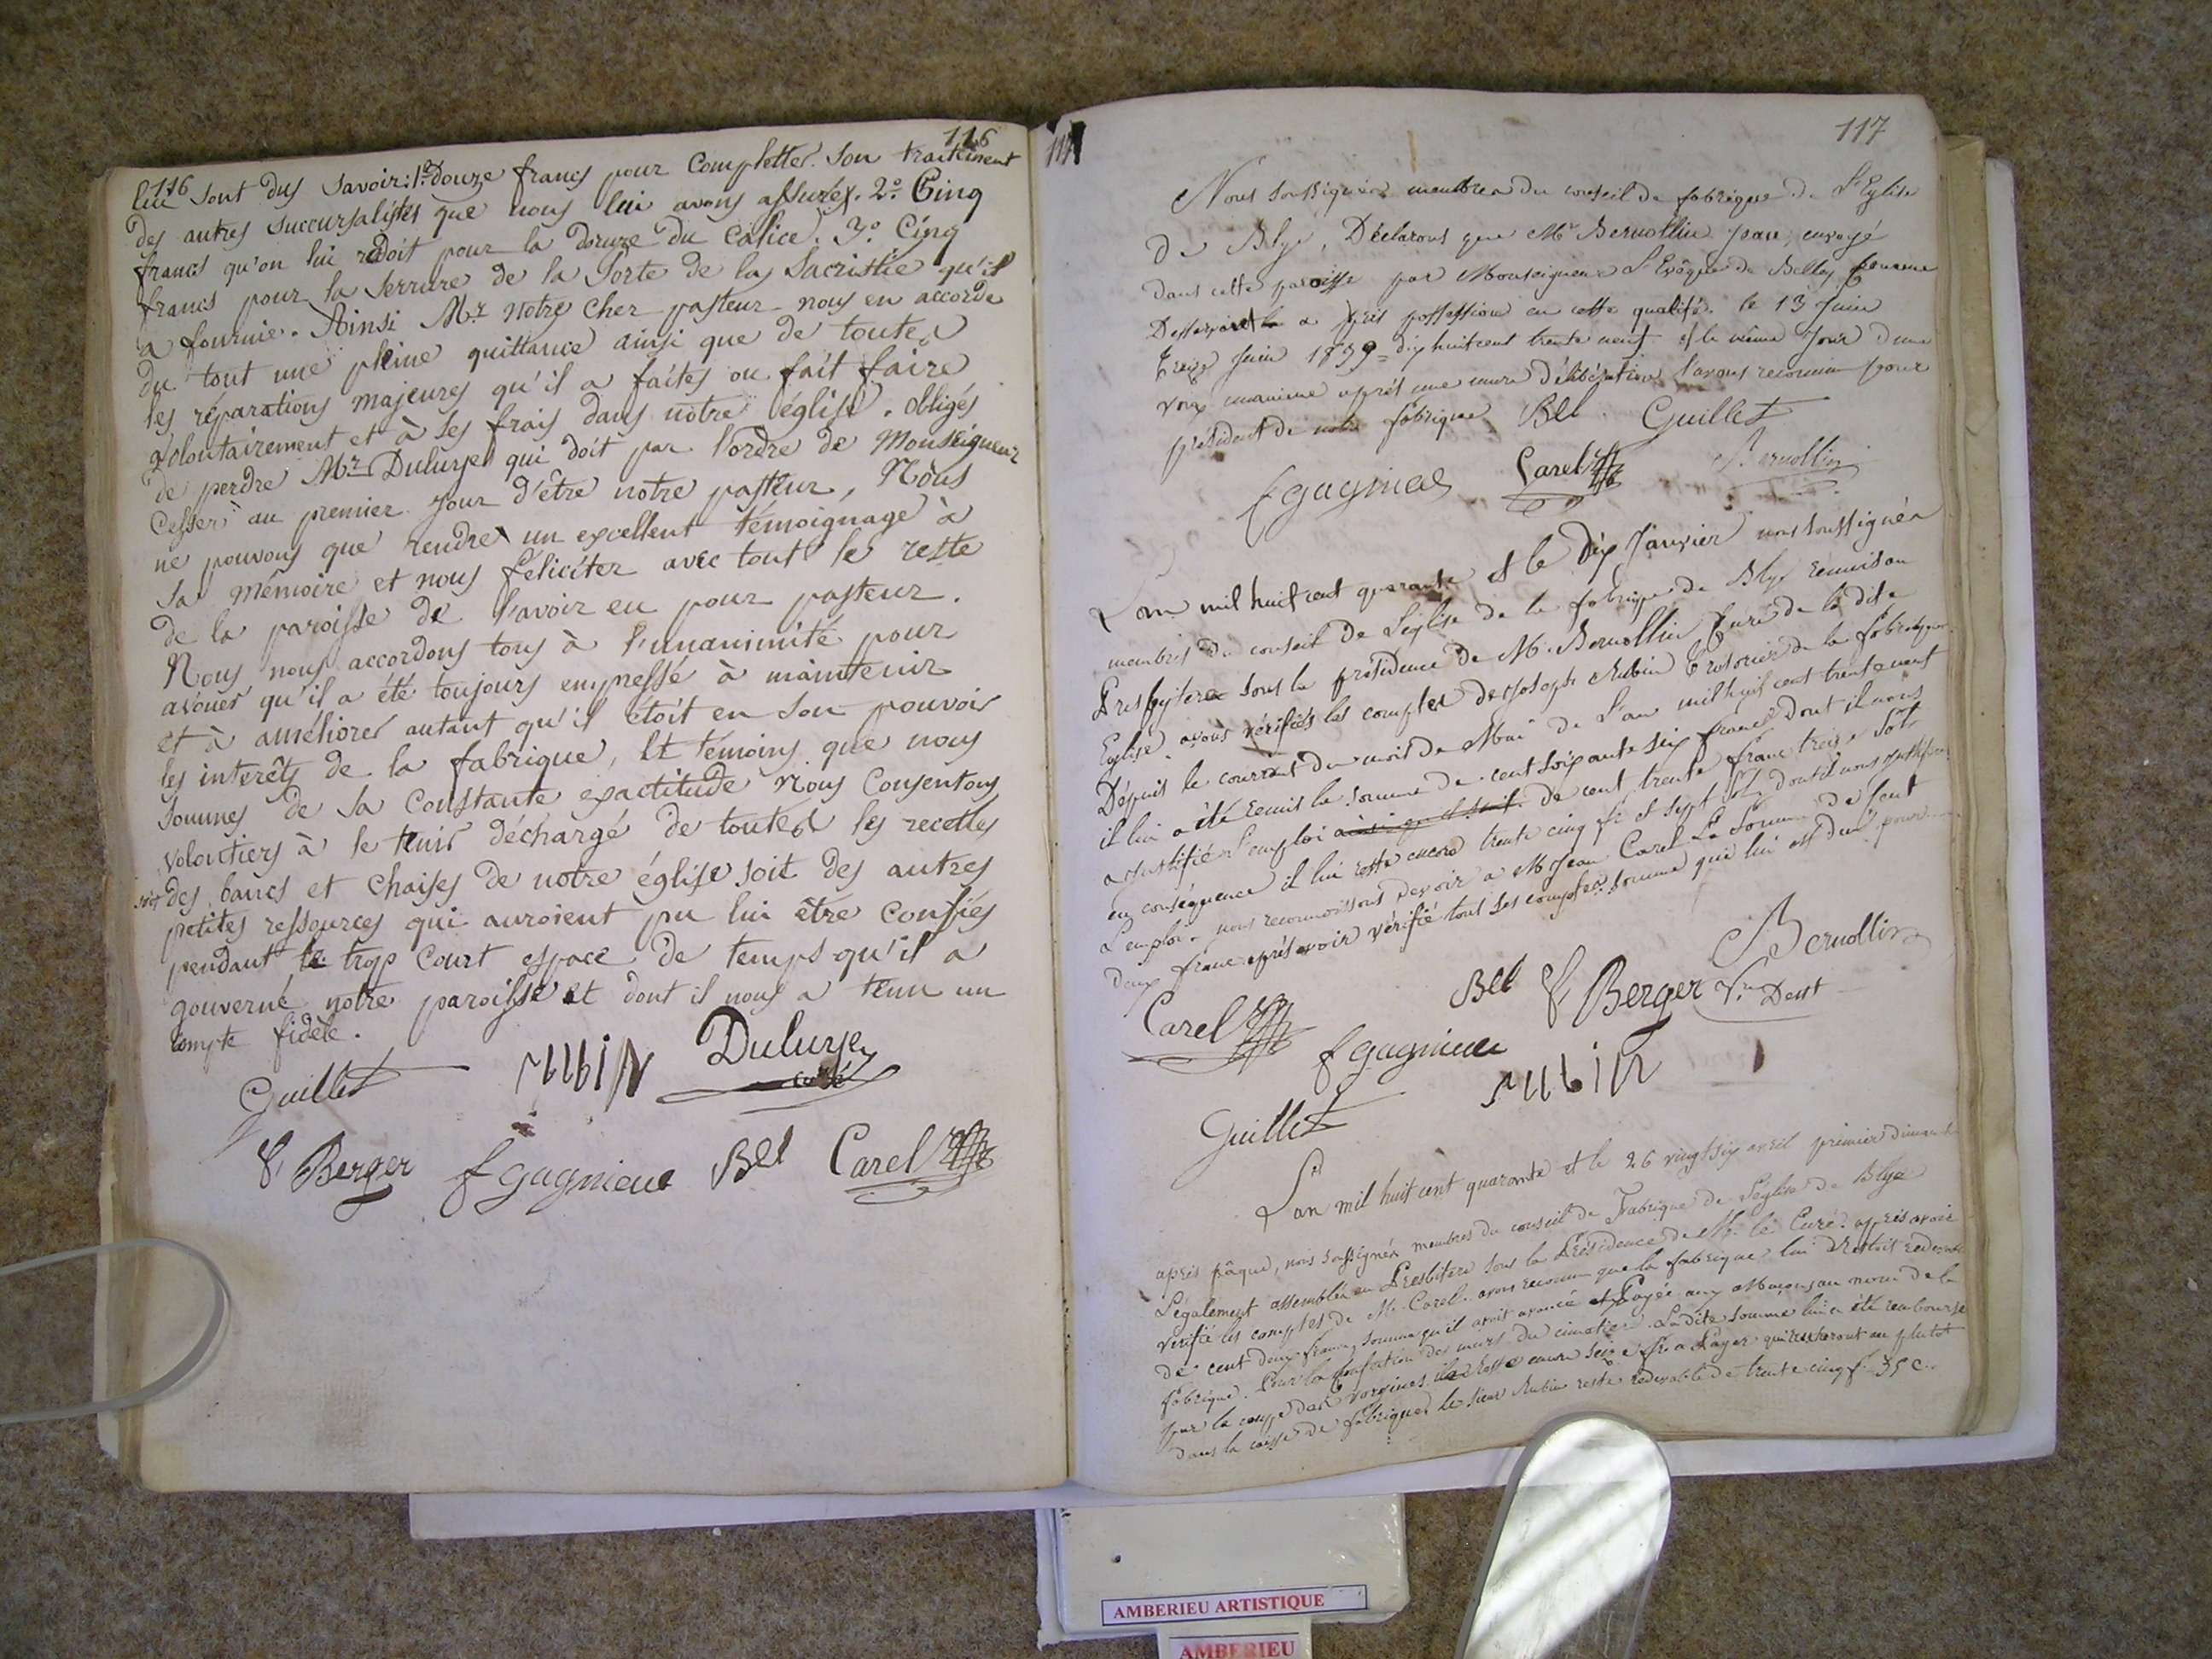 116
116
lui sont dus Savoir: 1º douze francs pour Completter son traitement
des autres succursalistes que nous lui avons assurés. 2º Cinq
francs qu'on lui redoit pour la dorure du Calice. 3º Cinq
francs pour la Serrure de la Porte de la Sacristie qu'il
a fournie. Ainsi Mr notre Cher pasteur nous en accorde
du tout une pleine quittance ainsi que de toutes
les réparations majeures qu'il a faites ou fait faire
volontairement et à ses frais dans notre église. obligés
de perdre Mr Dulurje qui doit par l'ordre de Monseigneur
Cesser au premier jour d'être notre pasteur, Nous
ne pouvons que rendre un excellent témoignage à
sa mémoire et nous féliciter avec tout le reste
de la paroisse de l'avoir eu pour pasteur.
Nous nous accordons tous à l'unanimité pour
avouer qu'il a été toujours empressé à maintenir
et à améliorer autant qu'il étoit en son pouvoir
les interêts de la fabrique, et témoins que nous
sommes de sa constante exactitude Nous Consentons
volontiers à le tenir déchargé de toutes les recettes
soit des bancs et chaises de notre église soit des autres
petites ressources qui auroient pu lui être confiés
pendant le trop court espace de temps qu'il a
gouverné notre paroisse et dont il nous a tenu un
compte fidèle.
Guillet rubin Dulurje
curé
Berger f gagnieue Bel Carel
117
Nous soussignés membres du conseil de fabrique de L'Eglise
de Blye, Déclarons que Mr Bernollin Jean, envoyé
dans cette paroisse par Monseigneur L'Evêque de Belley comme
Desservant a pris possession en cette qualité le 13 Juin
Treize Juin 1839 = dix huit cent trente neuf et le même Jour d'une
voix unanime après une mure délibération l'avons reconnu pour
président de notre fabrique Bel Guillet
f gagnieue Carel Bernollin
L'an mil huit cent quarante et le Dix Janvier nous soussignés
membres du conseil de l'église de la fabrique de Blye reunis au
Presbytere sous la présidence de M. Bernollin Curé de la dite
Eglise avons vérifiés les comptes de Joseph Rubin trésorier de la fabrique
Depuis le courrant du mois de Mai de L'an mil huit cent trente neuf
il lui a été remis la somme de cent soixante six francs dont il nous
a justifié l'emploi ainsi qu'il suit de cent trente franc treize sols
en conséquence il lui reste encore trente cinq fr et sept sols dont il nous
L'emploi. nous reconnoissons devoir a Mr Jean Carel La somme de Cent
deux franc après avoir vérifié tous ses comptes somme qui lui est due pour
Bernollin
Carel Bel Berger Dest
f gagnieue rubin
Guillet
L'an mil huit cent quarante et le 26 vingt six avril premier dimanche
après pâque, nous soussignés membres du conseil de Fabrique de l'église de Blye
Légalement assemblés au Presbitère sous la Présidence de Mr le Curé après avoir
vérifié les comptes de Mr Carel avons reconnu que la fabrique lui Restoit redevable
de cent deux francs, somme qu'il avoit avancé et Payée aux Maçons au nom de la
fabrique. Pour la confection des murs du cimetière La dite somme lui a été remboursé
pour la coupe des vorgines il reste encore seize fr. a Payer qui rentreront au plutot
dans la caisse de fabrique, le sieur Rubin reste redevable de trente cinq f 35 c.
AMBERIEU ARTISTIQUE
AMBERIEU